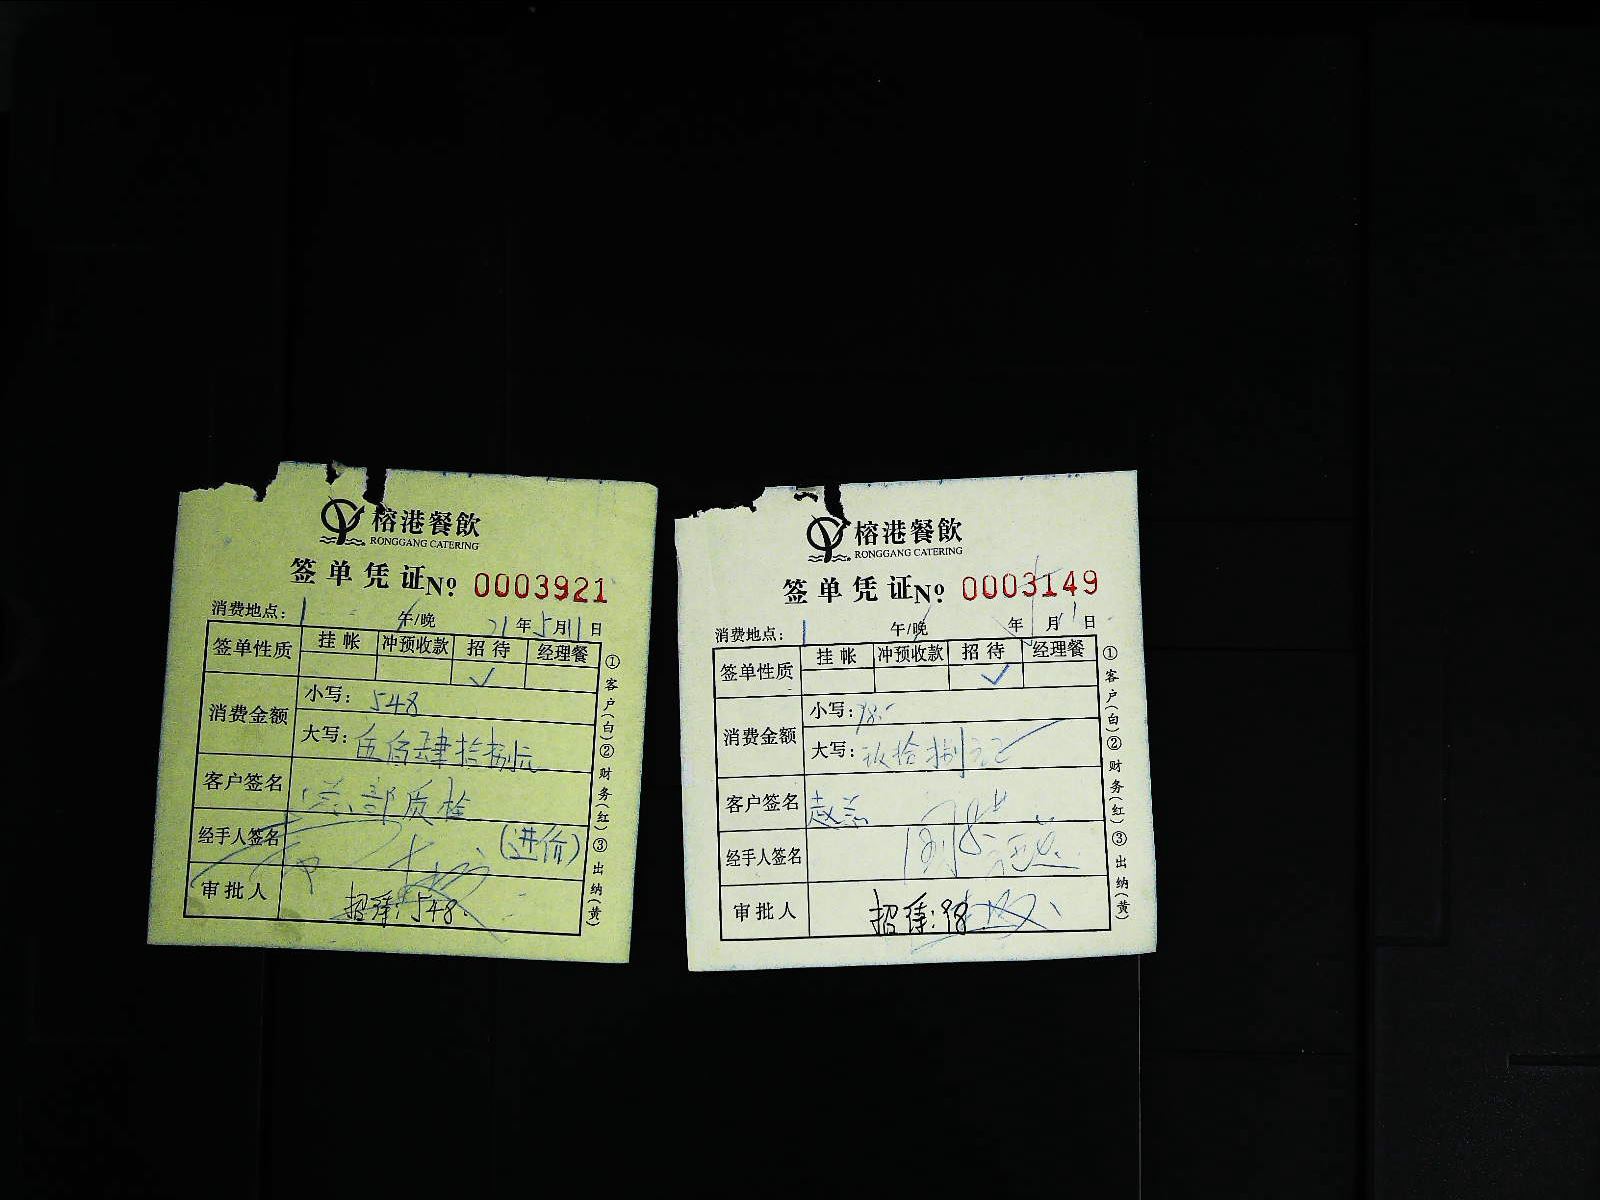 榕港餐飲
RONGGANG CATERING
签单凭证 №: 0003921
消费地点: 午/晚 21年5月11日
签单性质 挂帐 冲预收款 招待 经理餐
✓
消费金额 小写: 548
大写: 伍佰肆拾捌元
客户签名 部质检
经手人签名 (进价)
审批人 招待:548.
①客户(白)②财务(红)③出纳(黄)
榕港餐飲
RONGGANG CATERING
签单凭证 №: 0003149
消费地点: 午/晚 年 月 日
签单性质 挂帐 冲预收款 招待 经理餐
✓
消费金额 小写: 98.-
大写: 玖拾捌元
客户签名 赵总
经手人签名
审批人 招待:98
①客户(白)②财务(红)③出纳(黄)